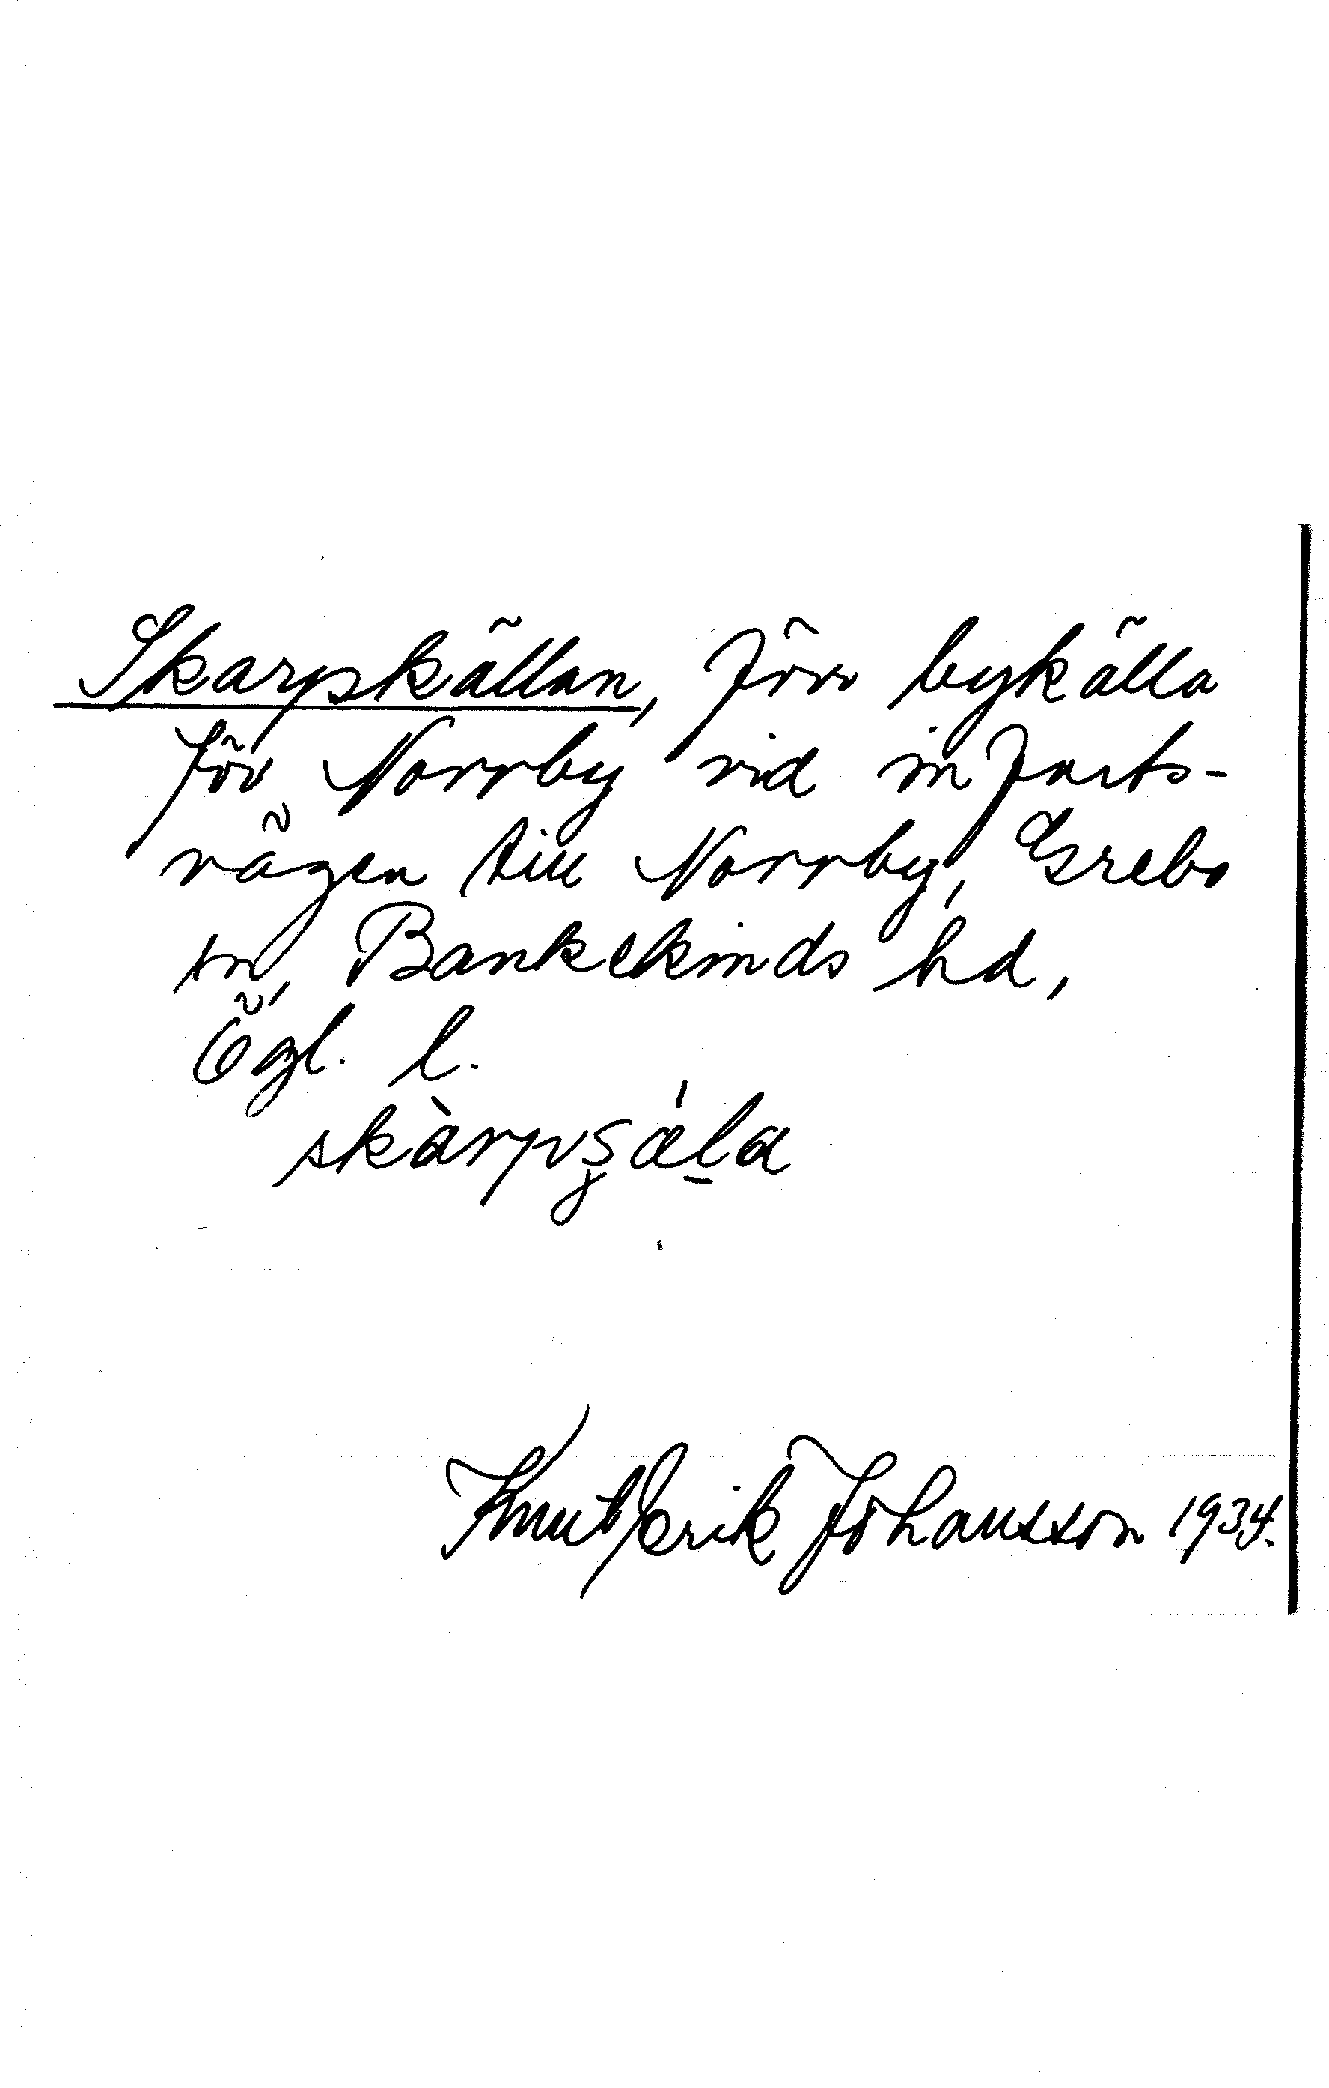 Skarpskällan, förr bykälla
för Norrby vid infarts-
vägen till Norrby, Grebo
sn, Bankekinds hd,
Ögl. l.
Knut Erik Johansson 1934.